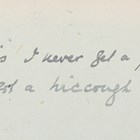 I never get a
a hiccough